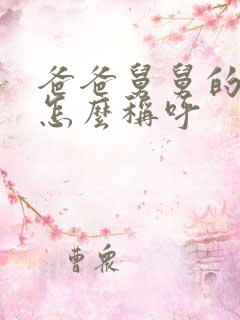 爸爸舅舅的
怎麼稱呼
曹眾